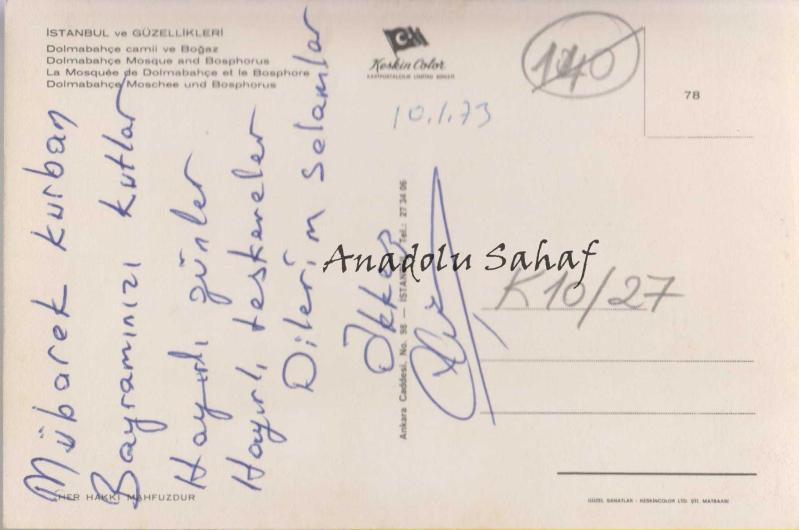 İSTANBUL ve GÜZELLİKLERİ
Dolmabahçe camii ve Boğaz
Dolmabahçe Mosque and Bosphorus
La Mosquée de Dolmabahçe et le Bosphore
Dolmabahçe Moschee und Bosphorus
Keskin Color
KARTPOSTALCILIK LIMITED ŞİRKETİ
140
78
10.1.73
Mübarek kurban
Bayramınızı kutlar
Hayırlı günler
Hayırlı teskereler
Dilerim selamlar
Ökkeş
Ankara Caddesi, No. 98 — İSTANBUL Tel.: 27 34 06
Anadolu Sahaf
K10/27
HER HAKKI MAHFUZDUR
GÜZEL SANATLAR - KESKİNCOLOR LTD. ŞTİ. MATBAASI